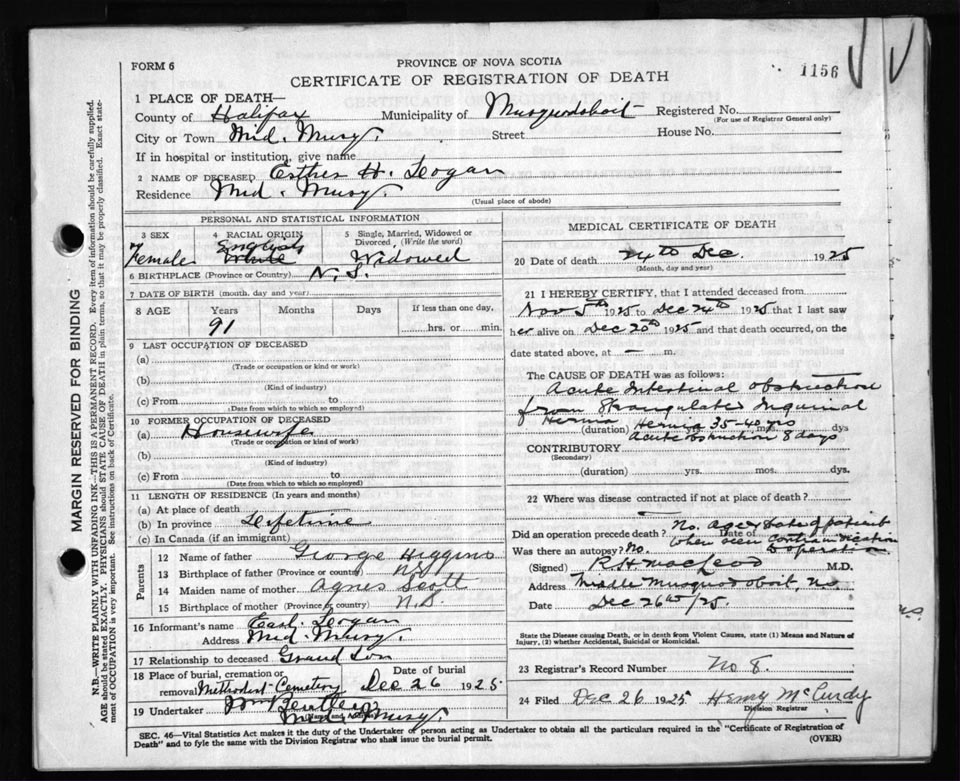 FORM 6
PROVINCE OF NOVA SCOTIA
CERTIFICATE OF REGISTRATION OF DEATH
1156
1 PLACE OF DEATH—
County of Halifax Municipality of Musquodoboit Registered No.
(For use of Registrar General only)
City or Town Mid. Musq. Street House No.
If in hospital or institution, give name
2 NAME OF DECEASED Esther H. Leogan
Residence Mid. Musq.
(Usual place of abode)
PERSONAL AND STATISTICAL INFORMATION
3 SEX 4 RACIAL ORIGIN 5 Single, Married, Widowed or Divorced, (Write the word)
Female English White Widowed
6 BIRTHPLACE (Province or Country) N. S.
7 DATE OF BIRTH (month, day and year)
8 AGE Years Months Days If less than one day,
91 hrs. or min.
9 LAST OCCUPATION OF DECEASED
(a)
(Trade or occupation or kind or work)
(b)
(Kind of industry)
(c) From to
(Date from which to which so employed)
10 FORMER OCCUPATION OF DECEASED
(a) Housewife
(Trade or occupation or kind of work)
(b)
(Kind of industry)
(c) From to
(Date from which to which so employed)
11 LENGTH OF RESIDENCE (In years and months)
(a) At place of death
(b) In province Lifetime
(c) In Canada (if an immigrant)
Parents
12 Name of father George Higgins
13 Birthplace of father (Province or country) N.S.
14 Maiden name of mother Agnes Scott
15 Birthplace of mother (Province or country) N.S.
16 Informant's name Earl Leogan
Address Mid. Musq.
17 Relationship to deceased Grand Son
18 Place of burial, cremation or removal Methodist Cemetery Date of burial Dec 26 1925
19 Undertaker Wm
(Name and Address) Musq.
MEDICAL CERTIFICATE OF DEATH
20 Date of death 24th Dec. 1925
(Month, day and year)
21 I HEREBY CERTIFY, that I attended deceased from
Nov 5th 1925 to Dec 24th 1925 that I last saw
her alive on Dec 20th 1925 and that death occurred, on the
date stated above, at — m.
The CAUSE OF DEATH was as follows:
Acute Intestinal obstruction
from Strangulated Inguinal
Hernia Hernia 35-40 yrs
(duration) yrs. mos. dys
Acute obstruction 8 days
CONTRIBUTORY
(Secondary)
(duration) yrs. mos. dys.
22 Where was disease contracted if not at place of death?
Did an operation precede death? No. Age & state of patient
Date of when seen contraindication
Was there an autopsy? No. to operation
(Signed) R H MacLeod M.D.
Address Middle Musquodoboit, N.S.
Date Dec 26th/25.
State the Disease causing Death, or in death from Violent Causes, state (1) Means and Nature of
Injury, (2) whether Accidental, Suicidal or Homicidal.
23 Registrar's Record Number No 8.
24 Filed Dec 26 1925 Henry McCurdy
Division Registrar
SEC. 46—Vital Statistics Act makes it the duty of the Undertaker or person acting as Undertaker to obtain all the particulars required in the "Certificate of Registration of
Death" and to fyle the same with the Division Registrar who shall issue the burial permit. (OVER)
MARGIN RESERVED FOR BINDING
N.B.—WRITE PLAINLY WITH UNFADING INK—THIS IS A PERMANENT RECORD. Every item of information should be carefully supplied.
AGE should be stated EXACTLY. PHYSICIANS should STATE CAUSE OF DEATH in plain terms, so that it may be properly classified. Exact statement
of OCCUPATION is very important. See instructions on back of Certificate.